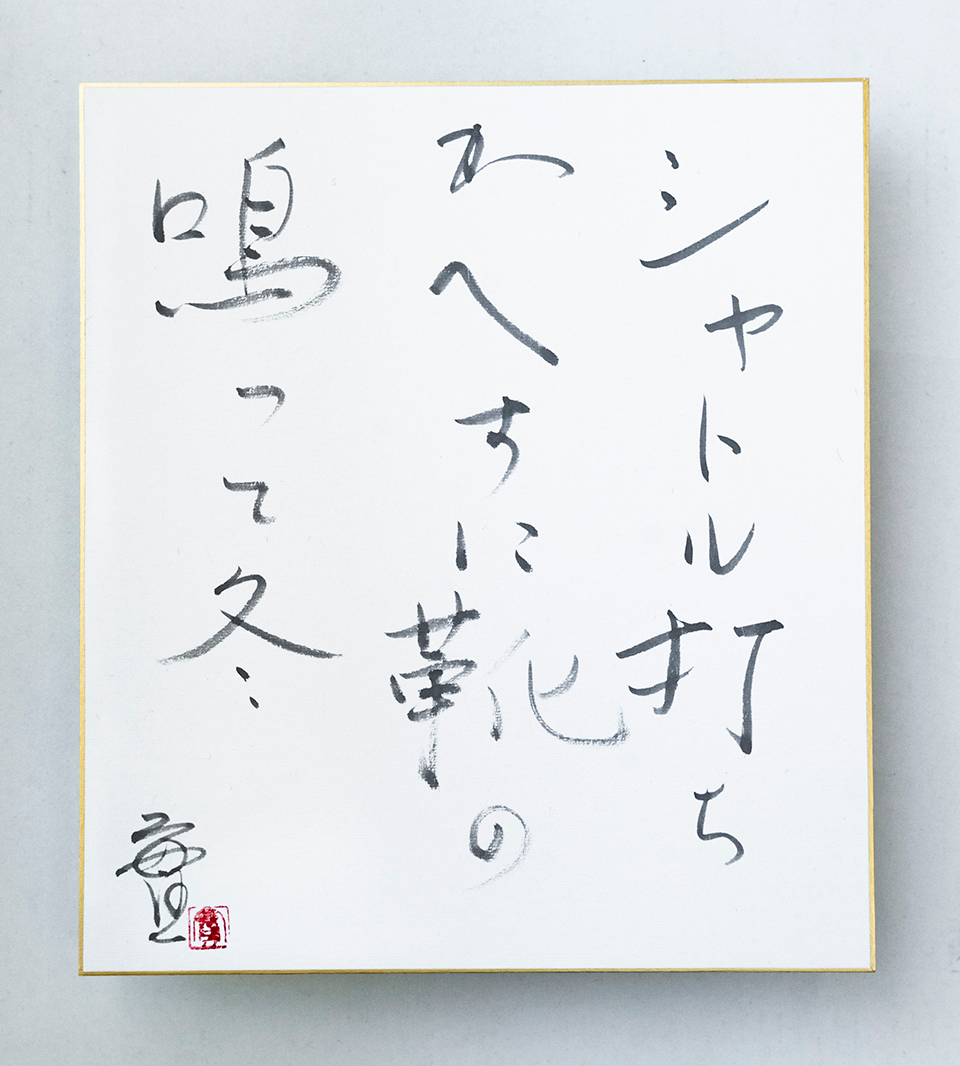 シャトル打ち
かへすに靴の
鳴つて冬